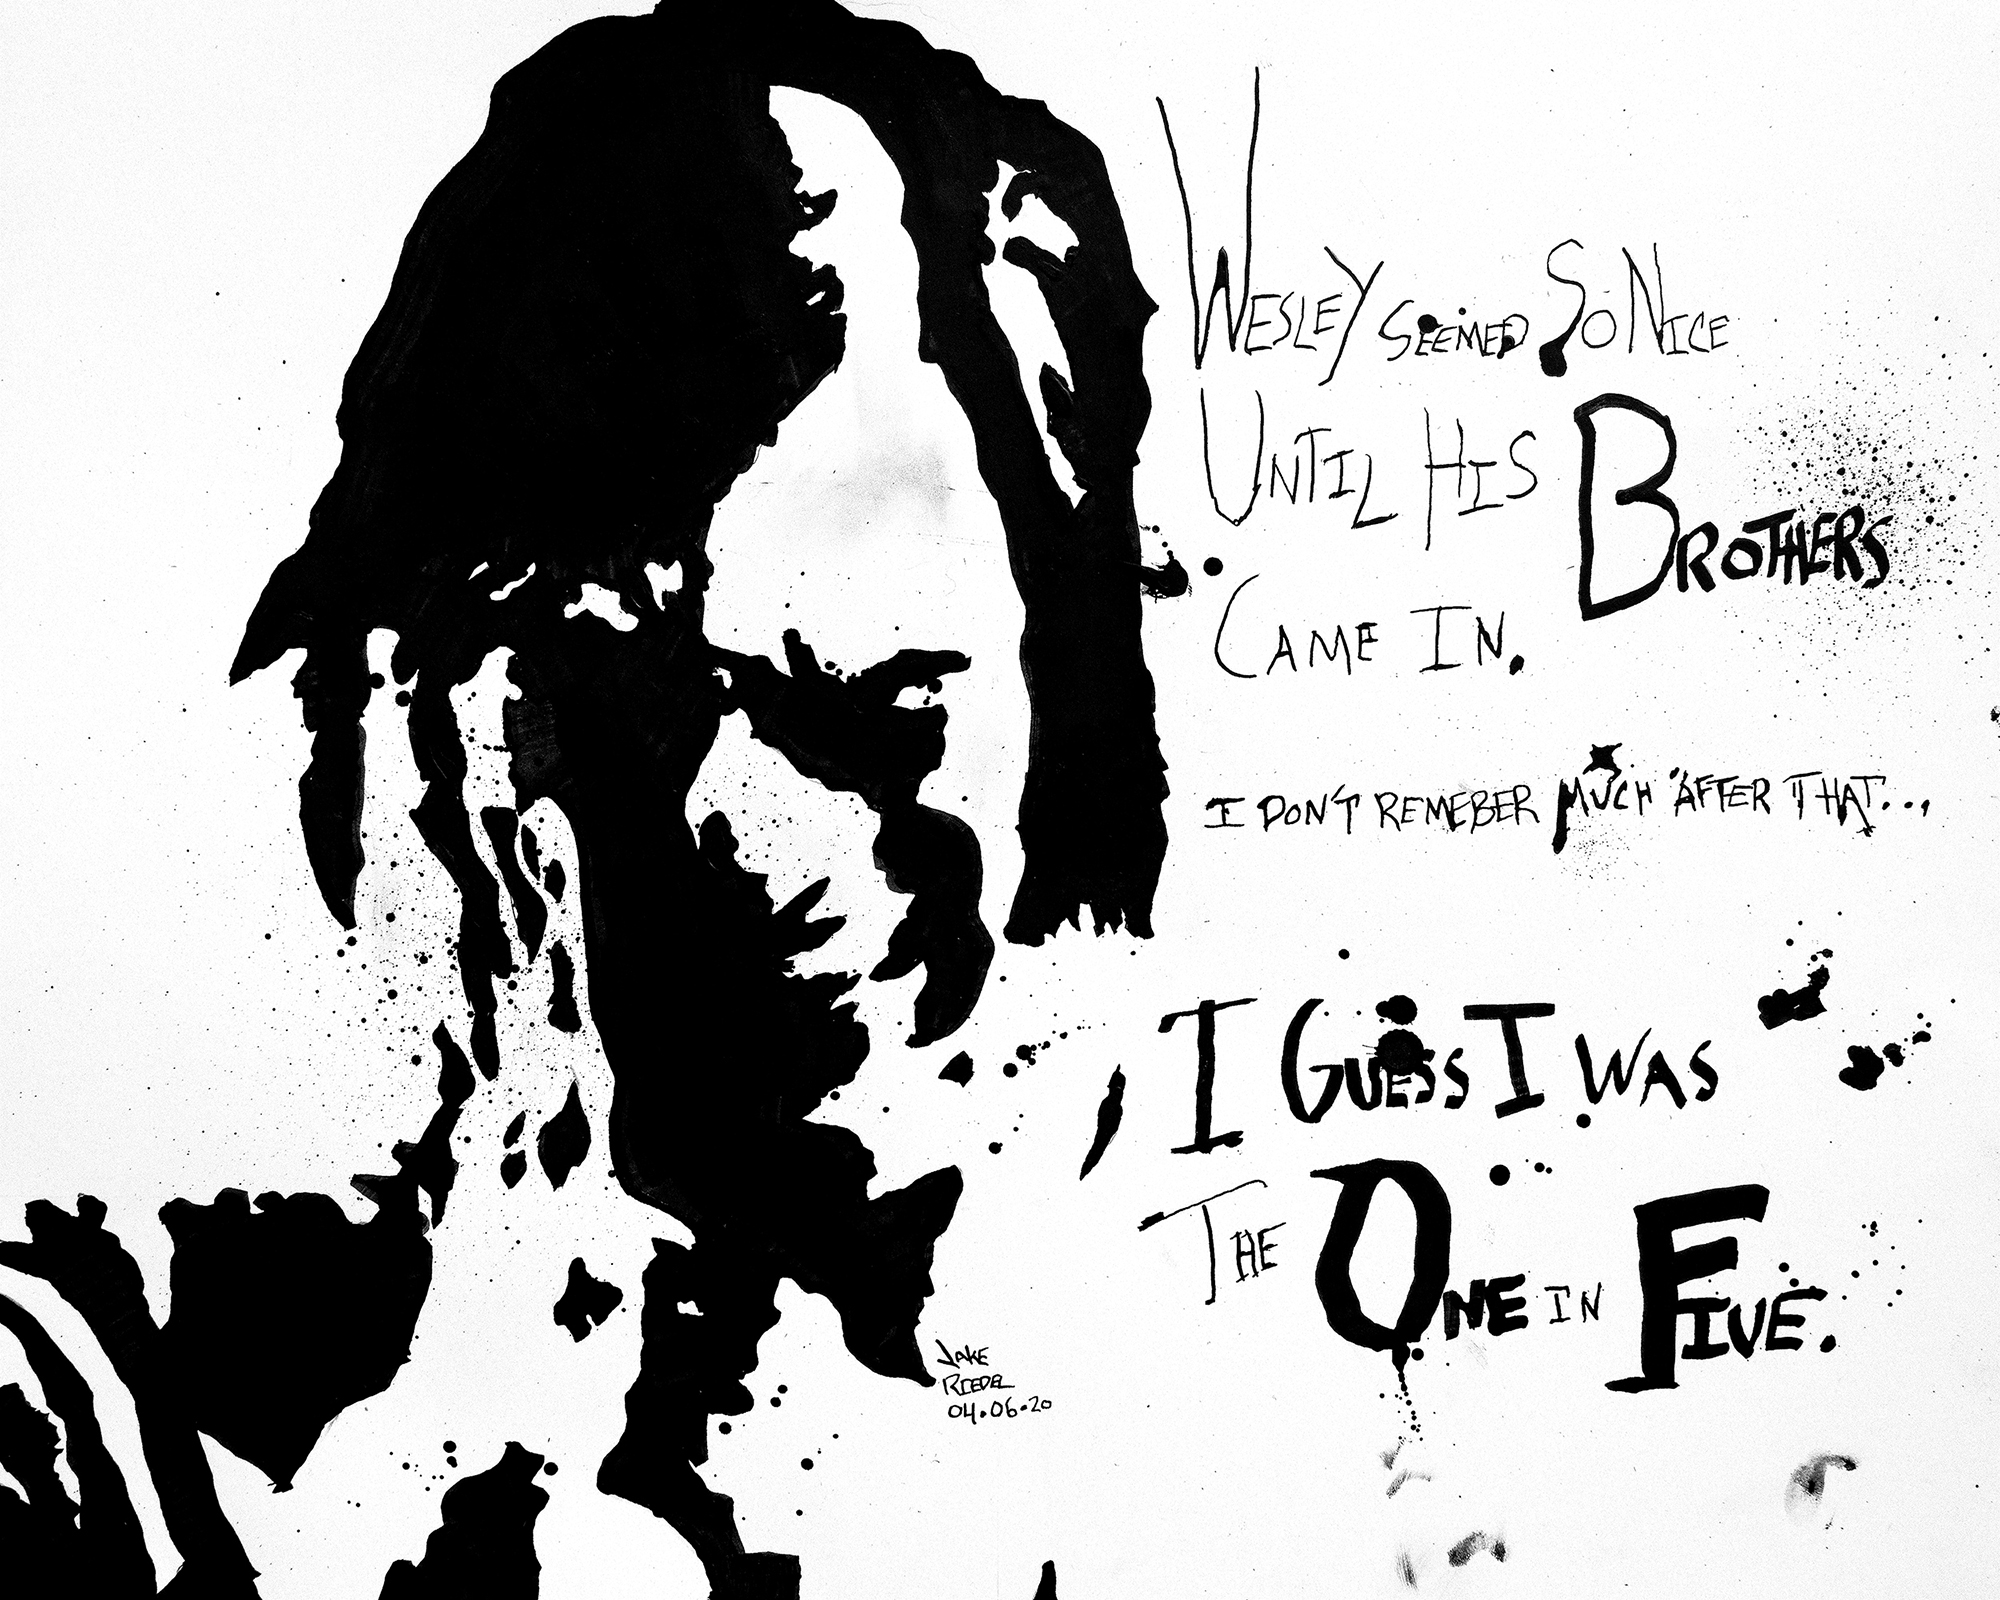 Wesley seemed So Nice
Until His Brothers
Came In.
I DON'T REMEBER MUCH AFTER THAT...
I Guess I was
The One in Five.
JAKE
RIEDEL
04.06.20